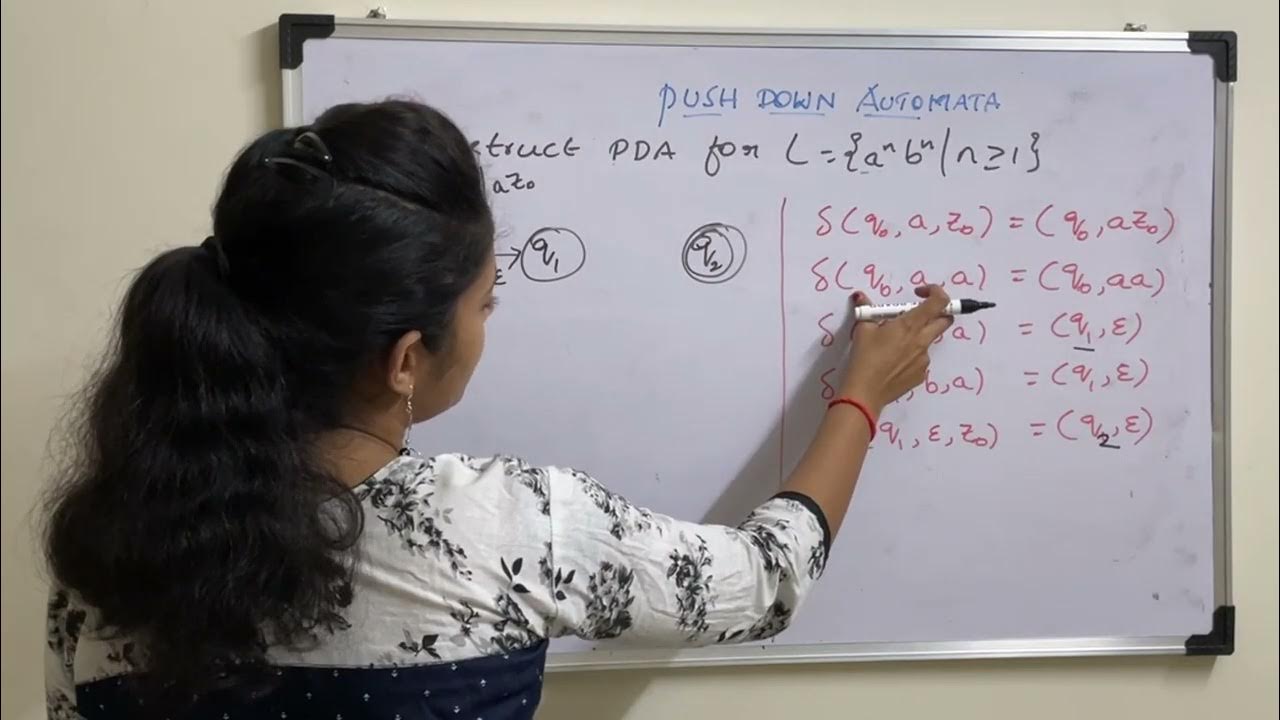 PUSH DOWN AUTOMATA
struct PDA for L = {aⁿ bⁿ | n ≥ 1}
a z₀
ε q₁ q₂
δ(q₀, a, z₀) = (q₀, a z₀)
δ(q₀, a, a) = (q₀, aa)
δ( , a) = (q₁, ε)
δ , b, a) = (q₁, ε)
(q₁, ε, z₀) = (q₂, ε)